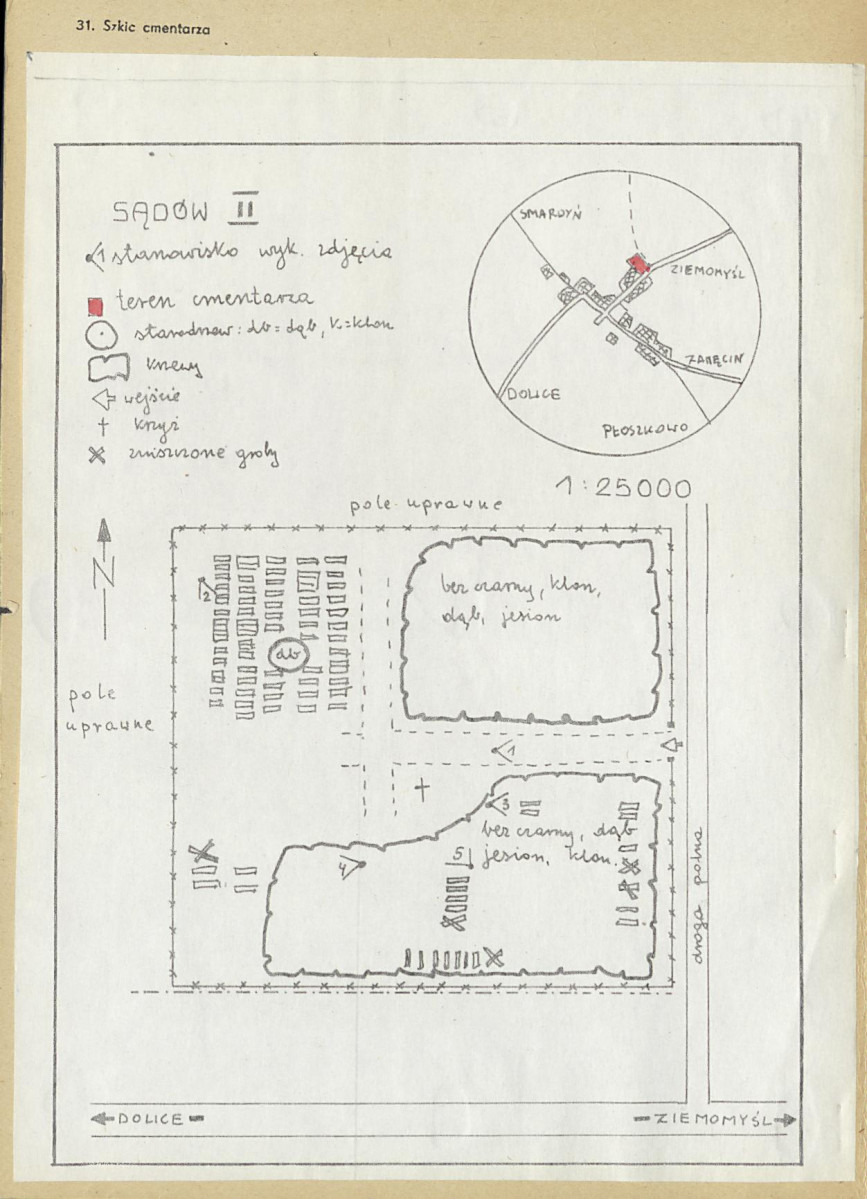 31. Szkic cmentarza
SĄDÓW II
1 stanowisko wyk. zdjęcia
teren cmentarza
starodrzew: db = dąb, k. = klon
krzewy
wejście
krzyż
zniszczone groby
SMARDYŃ
ZIEMOMYŚL
ZARĘCIN
DOLICE
PŁOSZKOWO
1:25000
pole uprawne
N
2
bez czarny, klon,
dąb, jesion
db
pole
uprawne
1
3
bez czarny, dąb
jesion, klon.
5
4
droga polna
DOLICE
ZIEMOMYŚL